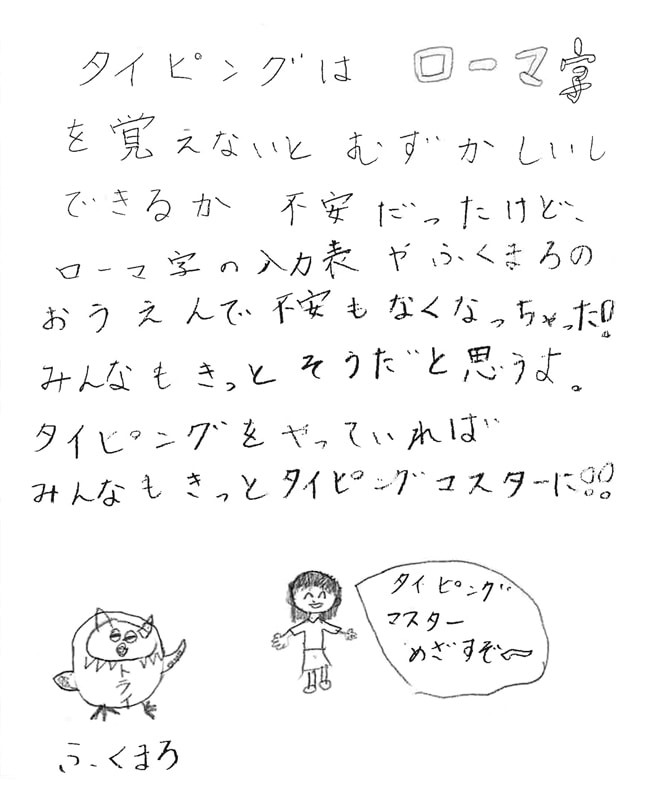 タイピングは ローマ字
を覚えないと むずかしいし
できるか 不安だったけど、
ローマ字の入力表やふくまろの
おうえんで不安もなくなっちゃった!
みんなもきっとそうだと思うよ。
タイピングをやっていれば
みんなもきっとタイピングマスターに!!
タイピング
マスター
めざすぞ〜
トライ
ふくまろ